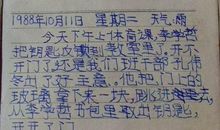 1988年10月11日 星期二 天气:雨
今天下午上体育课,李学哲
把钥匙放到教室里了。开不
开门了,还是我们班干部孔伟
冬出了好主意,他把门上的
玻璃拿下来一块,刚钻进去
从李学哲书包里取出钥匙,
开开了门